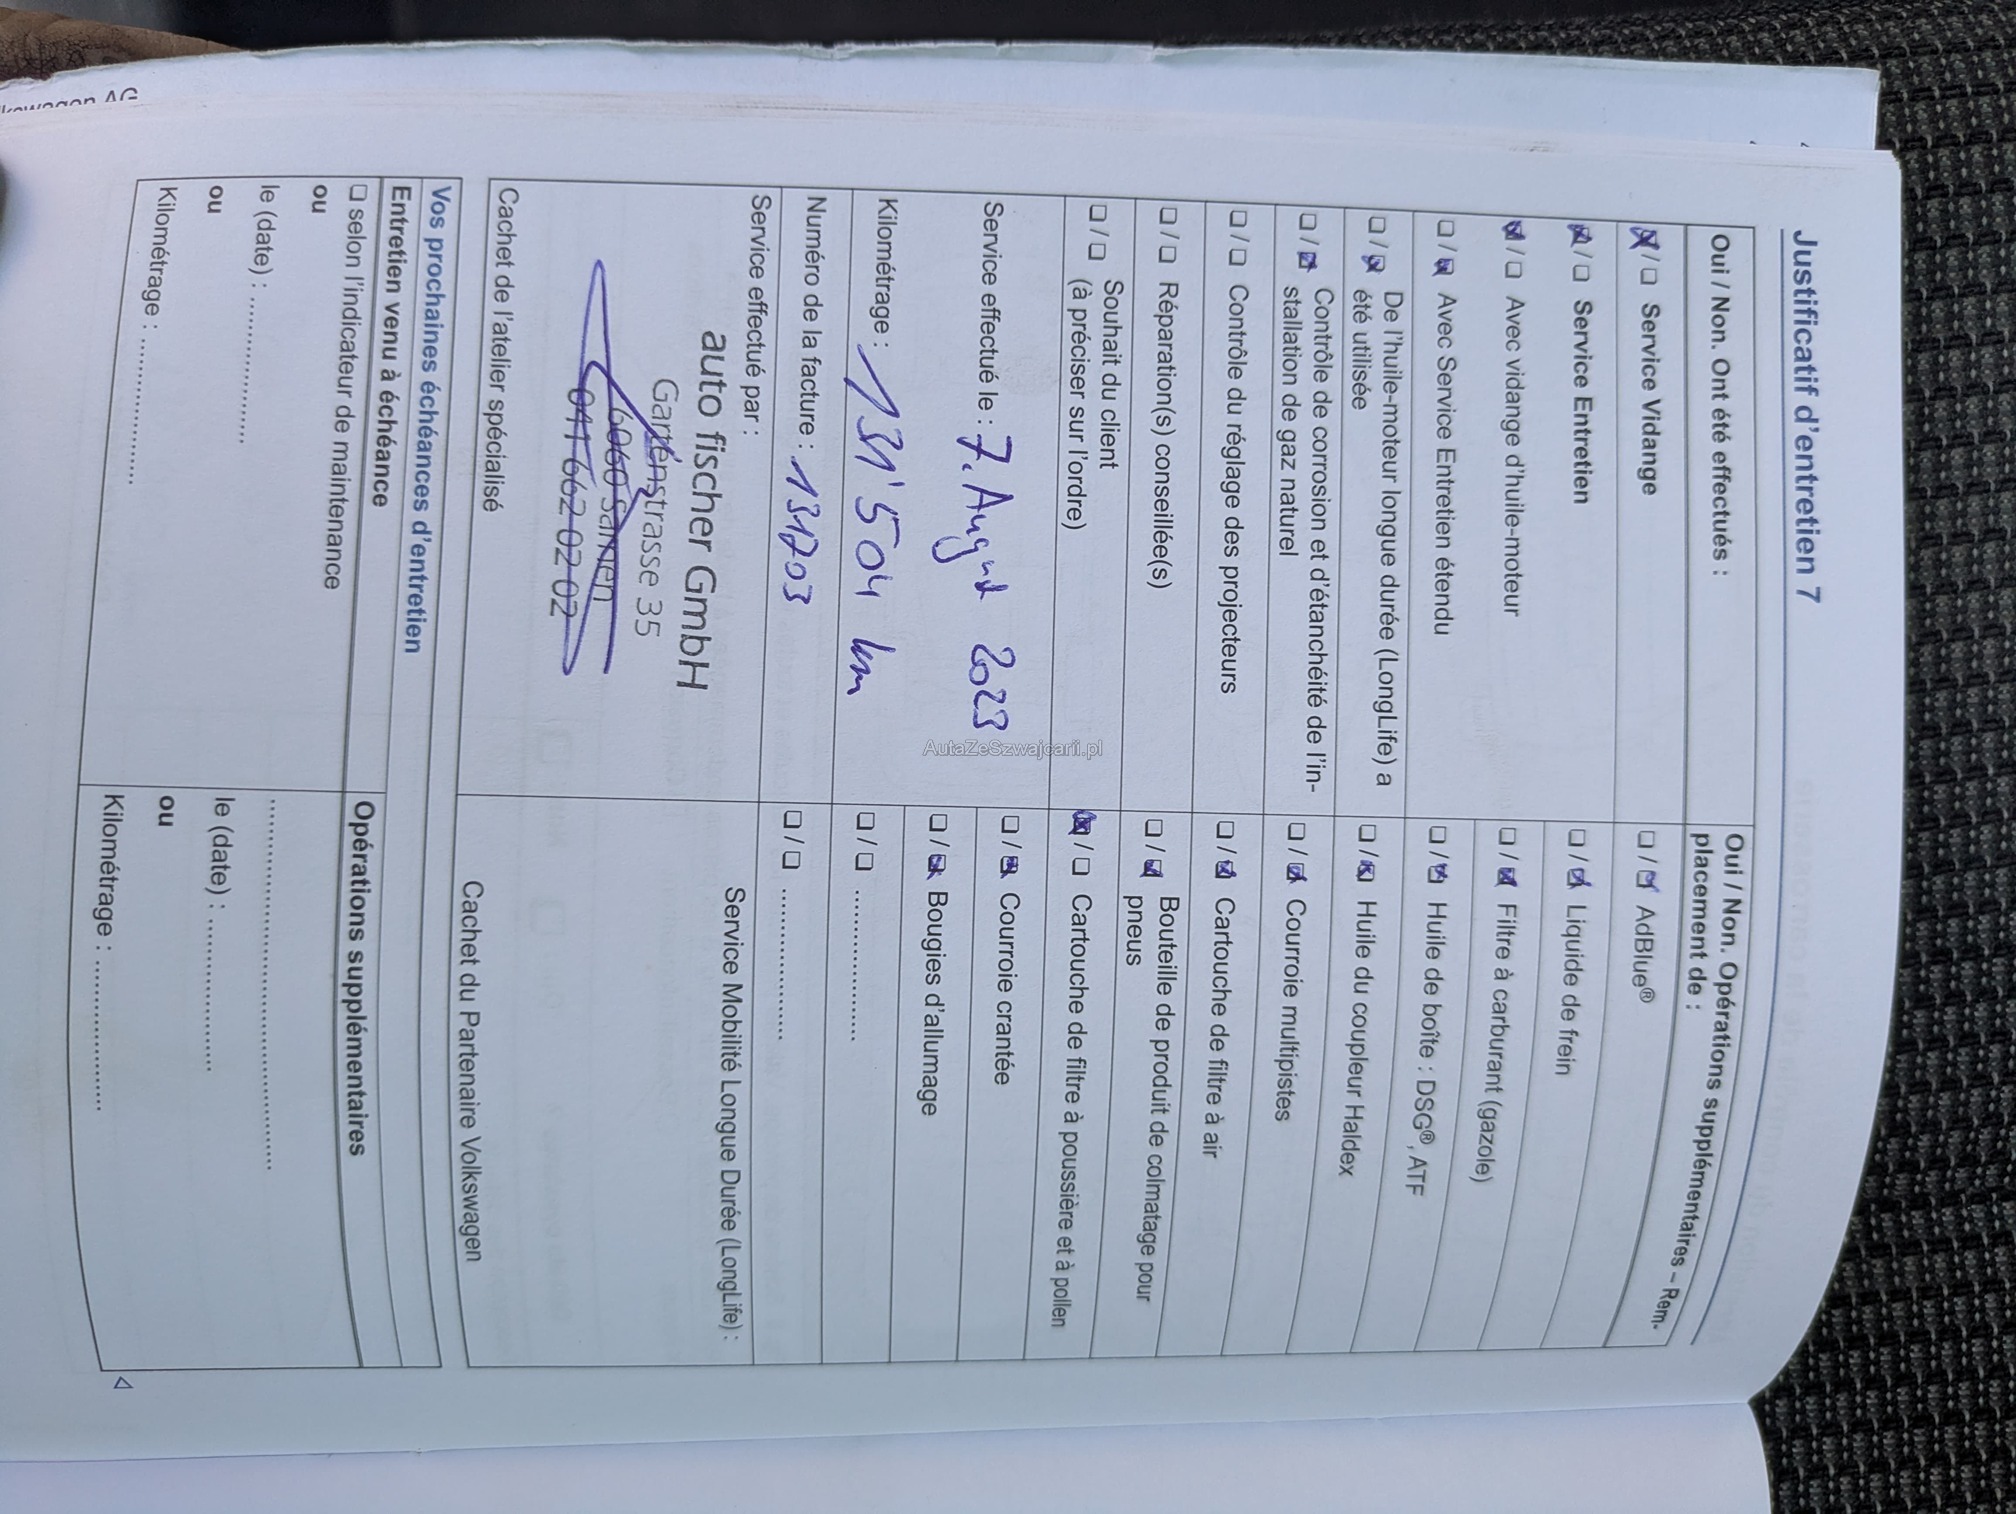 Justificatif d'entretien 7
Oui / Non. Ont été effectués :
☒ / ☐ Service Vidange
☒ / ☐ Service Entretien
☒ / ☐ Avec vidange d'huile-moteur
☐ / ☒ Avec Service Entretien étendu
☐ / ☒ De l'huile-moteur longue durée (LongLife) a
été utilisée
☐ / ☒ Contrôle de corrosion et d'étanchéité de l'in-
stallation de gaz naturel
☐ / ☐ Contrôle du réglage des projecteurs
☐ / ☐ Réparation(s) conseillée(s)
☐ / ☐ Souhait du client
(à préciser sur l'ordre)
Service effectué le : 7. August 2023
Kilométrage : 131'504 km
Numéro de la facture : 131203
Service effectué par :
auto fischer GmbH
Gartenstrasse 35
6060 Sarnen
041 662 02 02
Cachet de l'atelier spécialisé
Oui / Non. Opérations supplémentaires – Rem-
placement de :
☐ / ☒ AdBlue®
☐ / ☒ Liquide de frein
☐ / ☒ Filtre à carburant (gazole)
☐ / ☒ Huile de boîte : DSG®, ATF
☐ / ☒ Huile du coupleur Haldex
☐ / ☒ Courroie multipistes
☐ / ☒ Cartouche de filtre à air
☐ / ☒ Bouteille de produit de colmatage pour
pneus
☒ / ☐ Cartouche de filtre à poussière et à pollen
☐ / ☒ Courroie crantée
☐ / ☒ Bougies d'allumage
☐ / ☐ ....................
☐ / ☐ ....................
Service Mobilité Longue Durée (LongLife) :
Cachet du Partenaire Volkswagen
Vos prochaines échéances d'entretien
Entretien venu à échéance
☐ selon l'indicateur de maintenance
ou
le (date) : ....................
ou
Kilométrage : ....................
Opérations supplémentaires
..................................................
le (date) : ....................
ou
Kilométrage : ....................
AutaZeSzwajcarii.pl